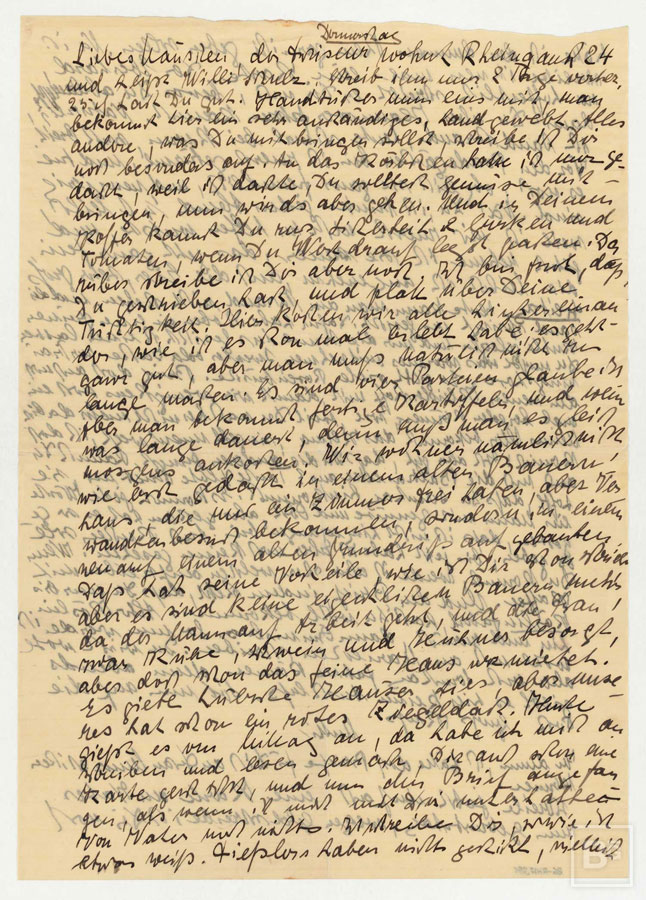 Donnerstag
Liebes Mäuschen, der Friseur wohnt Rheingau 24
und heisst Willi Schulz. Schreib ihm nur 2 Tage vorher,
hast Du gut. Handtücher nimm eins mit, man
bekommt hier ein sehr anständiges, handgewebt. Alles
andere, was Du mitbringen sollst, schreibe ich Dir
noch besonders auf. An das Körbchen habe ich nur ge-
dacht, weil ich dachte, Du solltest Gemüse mit-
bringen, nun wirds aber gehen. Und in Deinem
Koffer kannst Du zur Sicherheit 2 Gurken und
Tomaten, wenn Du Wert drauf legst packen. Da
rüber schreibe ich Dir aber noch. Ich bin froh, dass
Du geschrieben hast, und platt über Deine
Tüchtigkeit. Hier kochen wir alle hintereinan
der, wie ich es schon mal erlebt habe. es geht
ganz gut, aber man muss natürlich nicht zu
lange machen. Es sind vier Parteien glaube ich
aber man bekommt fertige Kartoffeln, und wenn
was lange dauert, dann muss man es gleich
morgens ankochen. Wir wohnen nämlich nicht
wie erst gedacht in einem alten Bauern,
haus, die nur ein Zimmer frei hatten, aber Ver
wandtenbesuch bekommen, sondern in einem
neu auf einem alten Grundriss aufgebauten
Dass hat seine Vorteile, wie ich Dir schon schrieb
aber es sind keine eigentlichen Bauern mehr
da der Mann auf Arbeit geht, und die Frau,
zwar Kühe, Schwein und Hühner besorgt,
aber doch schon das feine Haus vermietet.
Es giebt hübsche Häuser hier, aber unse-
res hat schon ein rotes Ziegeldach. Heute
giesst es von Mittag an, da habe ich mich an
schreiben und lesen gemacht. Dir auch schon eine
Karte geschickt, und nun den Brief angefan
gen, als wenn ich mich mit Dir unterhalten
Von Vater noch nichts. Ich schreibe Dir, sowie ich
etwas weiss. haben nichts geschickt, vielleicht